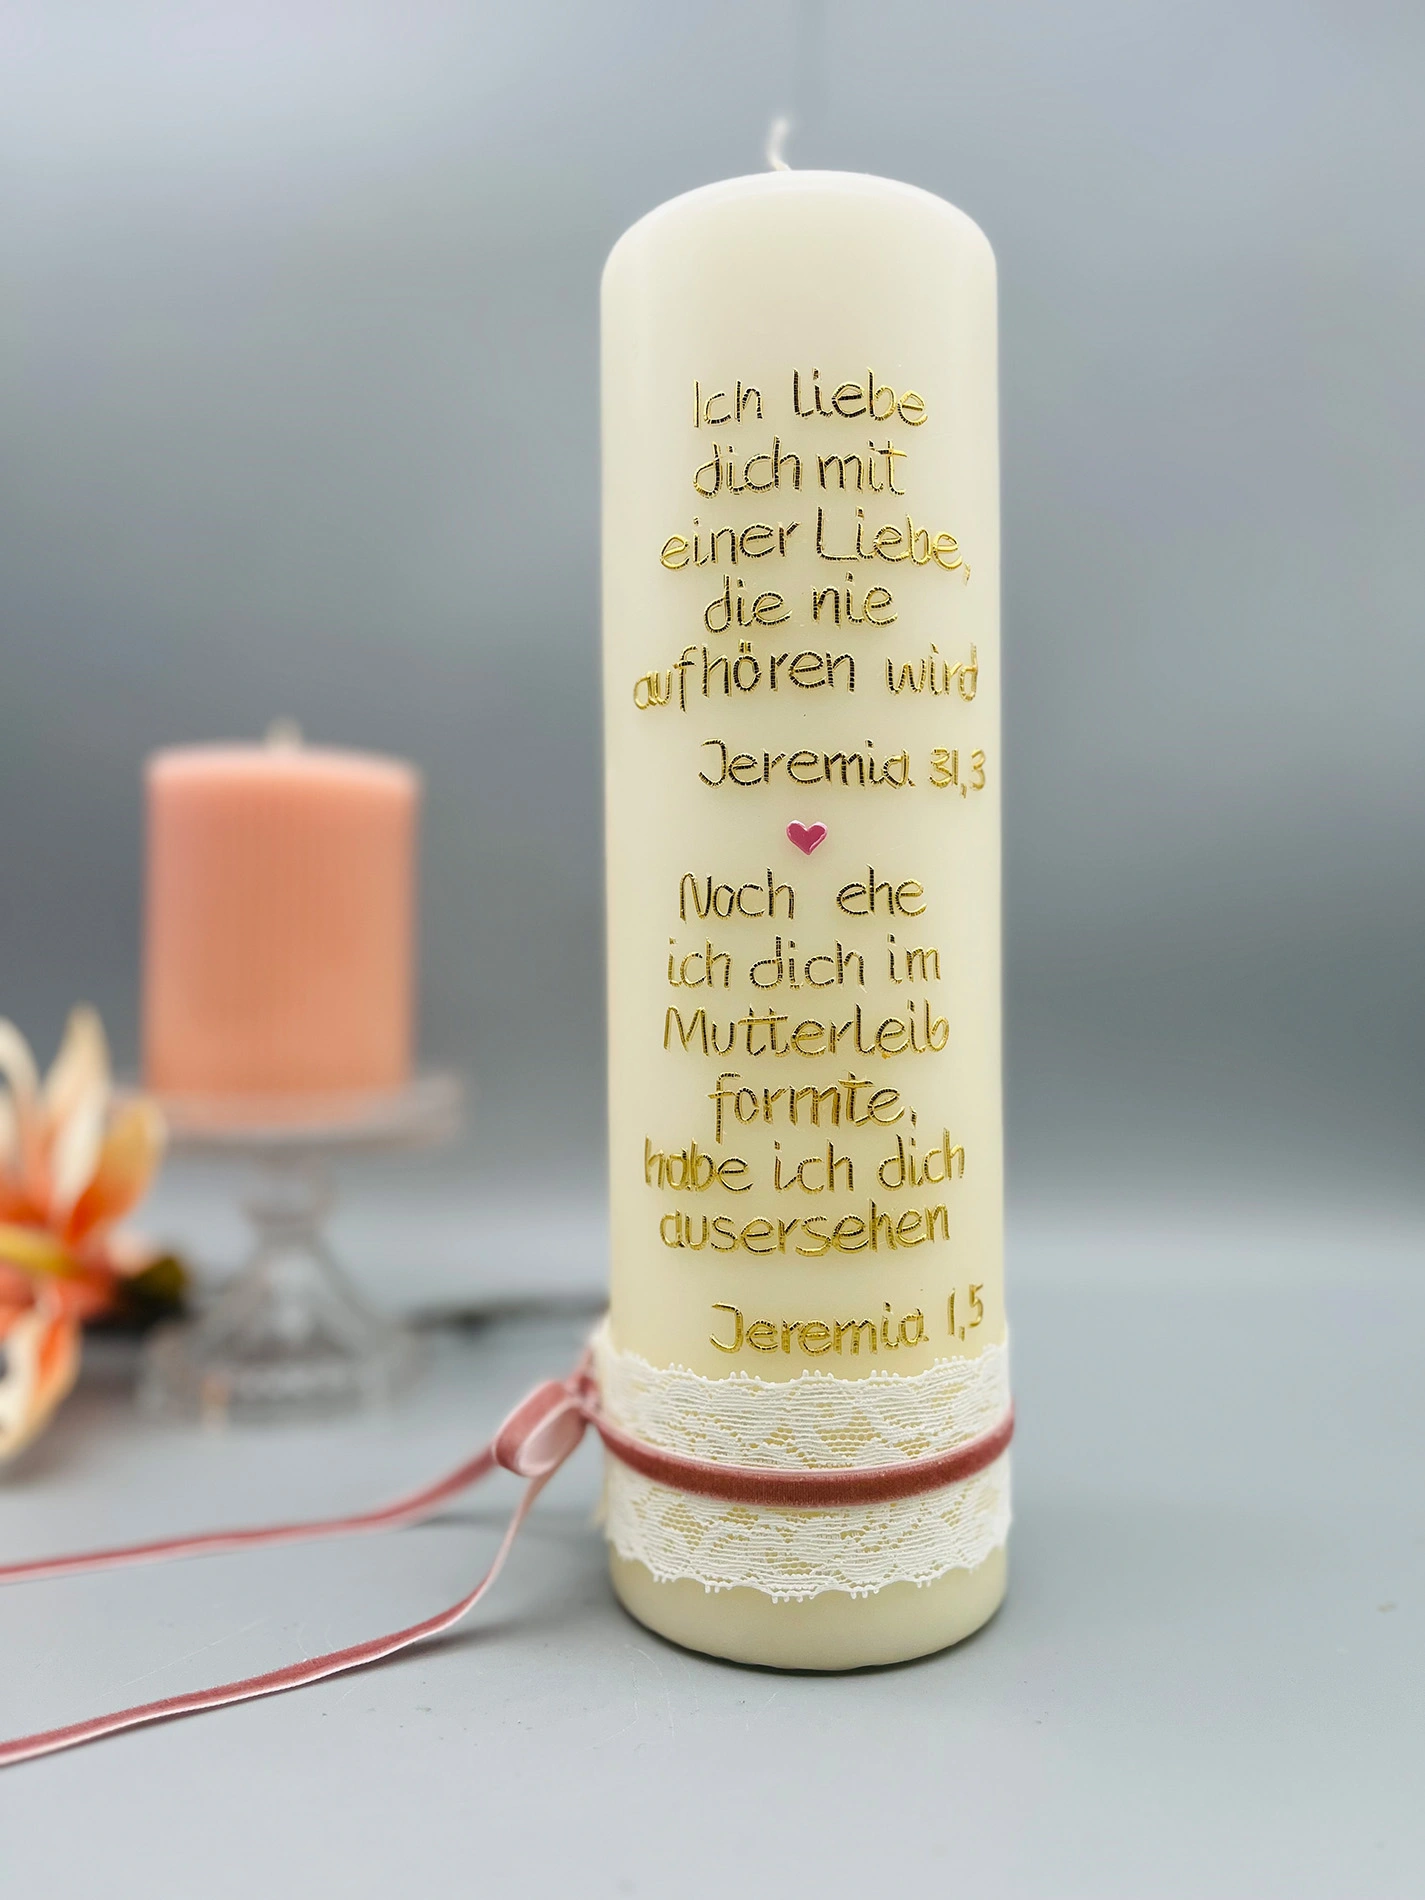 Ich liebe
dich mit
einer Liebe,
die nie
aufhören wird
Jeremia 31,3
Noch ehe
ich dich im
Mutterleib
formte,
habe ich dich
ausersehen
Jeremia 1,5